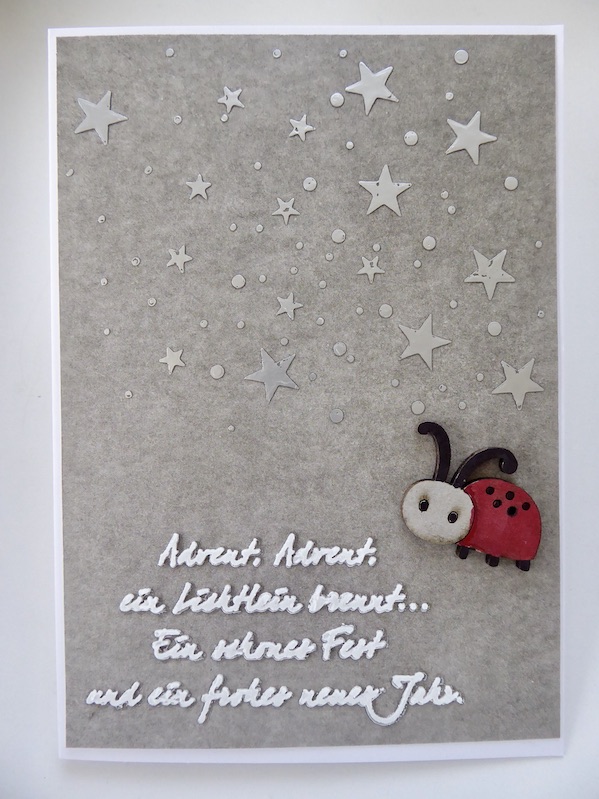 Advent, Advent,
ein Lichtlein brennt...
Ein schönes Fest
und ein frohes neues Jahr.